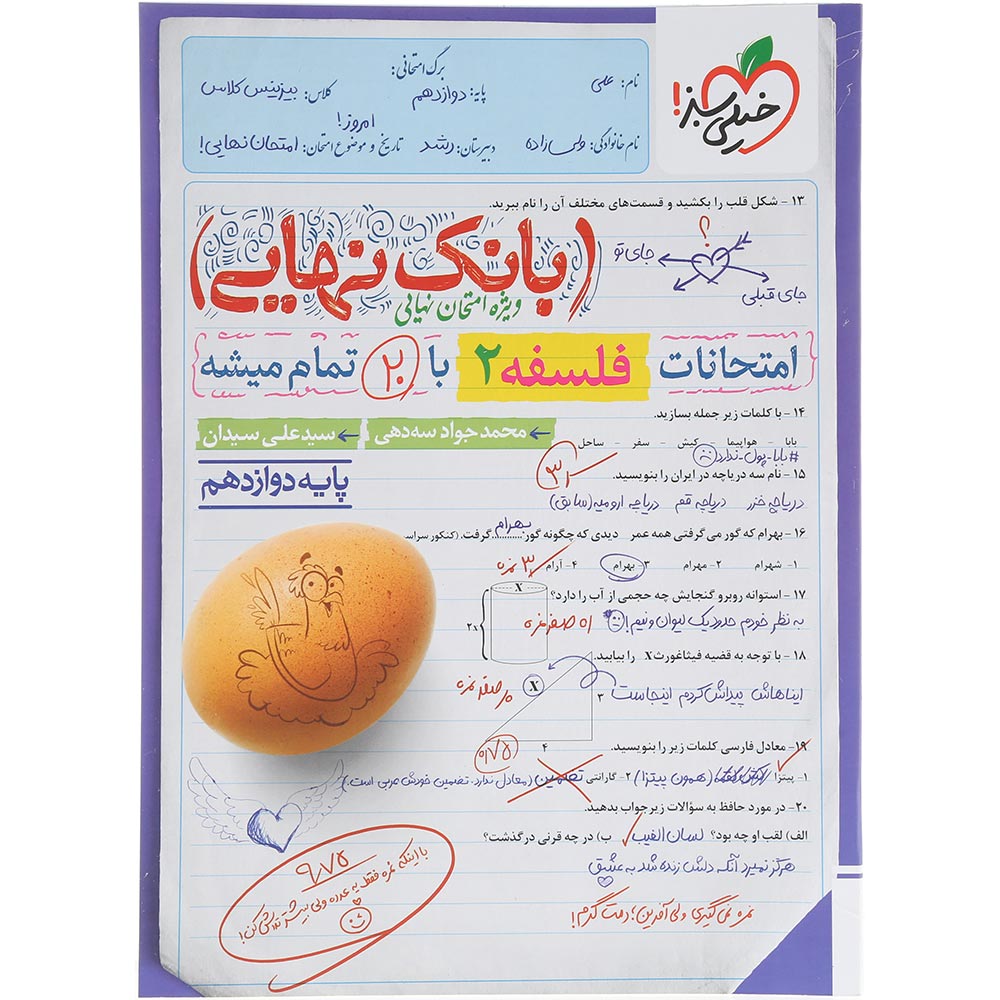 خیلی سبز!
برگ امتحانی:
نام: علی
پایه: دوازدهم
کلاس: بیزینس کلاس
امروز!
نام خانوادگی: ولی زاده
دبیرستان: رشد
تاریخ و موضوع امتحان: امتحان نهایی!
۱۳ - شکل قلب را بکشید و قسمت‌های مختلف آن را نام ببرید.
؟
جای تو
جای قبلی
(بانک نهایی)
ویژه امتحان نهایی
امتحانات فلسفه ۲ با ۲۰ تمام میشه
۱۴ - با کلمات زیر جمله بسازید.
بابا - هواپیما - کیش - سفر - ساحل
#بابا-پول-ندارد
محمدجواد سه‌دهی
سیدعلی سیدان
پایه دوازدهم
۱۵ - نام سه دریاچه در ایران را بنویسید.
۳
دریاچه خزر دریاچه قم دریاچه ارومیه (سابق)
۱۶ - بهرام که گور می‌گرفتی همه عمر دیدی که چگونه گور بهرام گرفت. (کنکور سراسر
۱- شهرام ۲- مهرام ۳- بهرام ۴- آرام
۳ نمره
۱۷ - استوانه روبرو گنجایش چه حجمی از آب را دارد؟
X
۲x
به نظر خودم حدود یک لیوان و نیم!
اه صفر نمره
۱۸ - با توجه به قضیه فیثاغورث X را بیابید.
X
۳
۴
ایناهاش پیداش کردم اینجاست
صفر نمره
۰/۷۵
۱۹ - معادل فارسی کلمات زیر را بنویسید.
۱- پیتزا (همون پیتزا) ۲- گارانتی تضمین (معادل ندارد. تضمین خودش عربی است.)
۲۰ - در مورد حافظ به سؤالات زیر جواب بدهید.
الف) لقب او چه بود؟ لسان الغیب ب) در چه قرنی درگذشت؟
هرگز نمیرد آنکه دلش زنده شد به عشق
نمره نمی‌گیری ولی آفرین؛ دمت گرم!
۹/۷۵
با اینکه نمره فقط یه عدده ولی بیشتر تلاش کن!